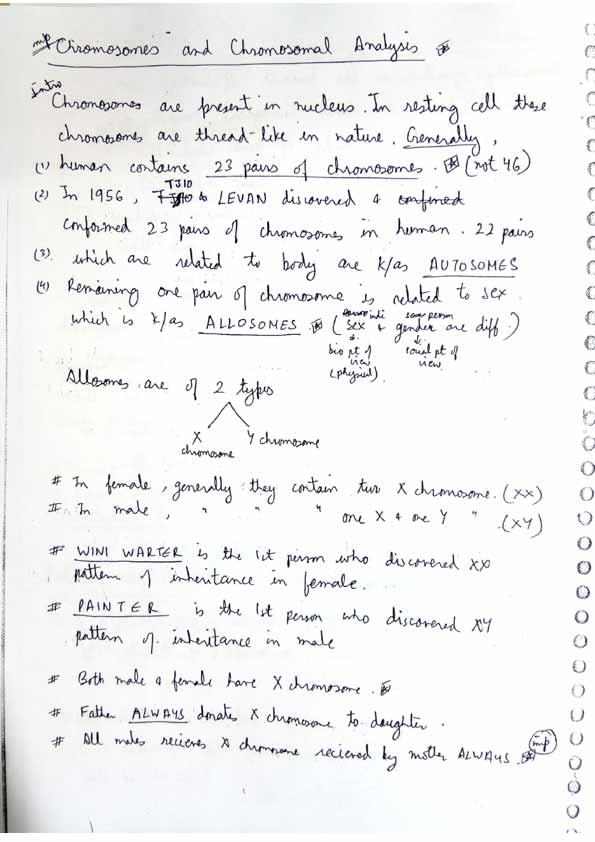 imp Chromosomes and Chromosomal Analysis
Intro
Chromosomes are present in nucleus. In resting cell these
chromosomes are thread-like in nature. Generally,
(1) human contains 23 pairs of chromosomes. (not 46)
TJIO
(2) In 1956, & LEVAN discovered & confined
conformed 23 pairs of chromosomes in human. 22 pairs
(3). which are related to body are k/as AUTOSOMES
(4) Remaining one pair of chromosome is related to sex
which is k/as ALLOSOMES (sex & gender are diff.)
bio pt of view (physical) social pt of view.
Allosomes are of 2 types
X chromosome Y chromosome
# In female, generally they contain two X chromosome. (XX)
# In male, " " " one X & one Y " . (XY)
# WINI WARTER is the 1st person who discovered XX
pattern of inheritance in female.
# PAINTER is the 1st person who discovered XY
pattern of inheritance in male
# Both male & female have X chromosome.
# Father ALWAYS donates X chromosome to daughter.
# All males recieves X chromosome recieved by mother ALWAYS. imp